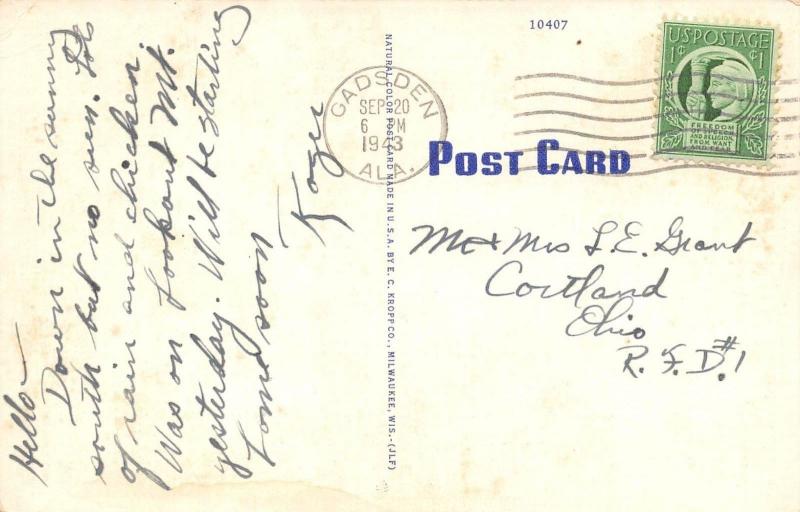 Hello -
Down in the sunny
south but no sun. Lots
of rain and chicken.
Was on Lookout Mt.
yesterday. Will be starting
soon
10407
NATURAL COLOR POST CARD MADE IN U.S.A. BY E. C. KROPP CO., MILWAUKEE, WIS.-(JLF)
GADSDEN
SEP 20
6 PM
1943
ALA.
U.S. POSTAGE
1¢ 1¢
FREEDOM
OF SPEECH
AND RELIGION,
FROM WANT
AND FEAR
POST CARD
Mr & Mrs L.E. Grant
Cortland
Ohio
R.F.D. #1